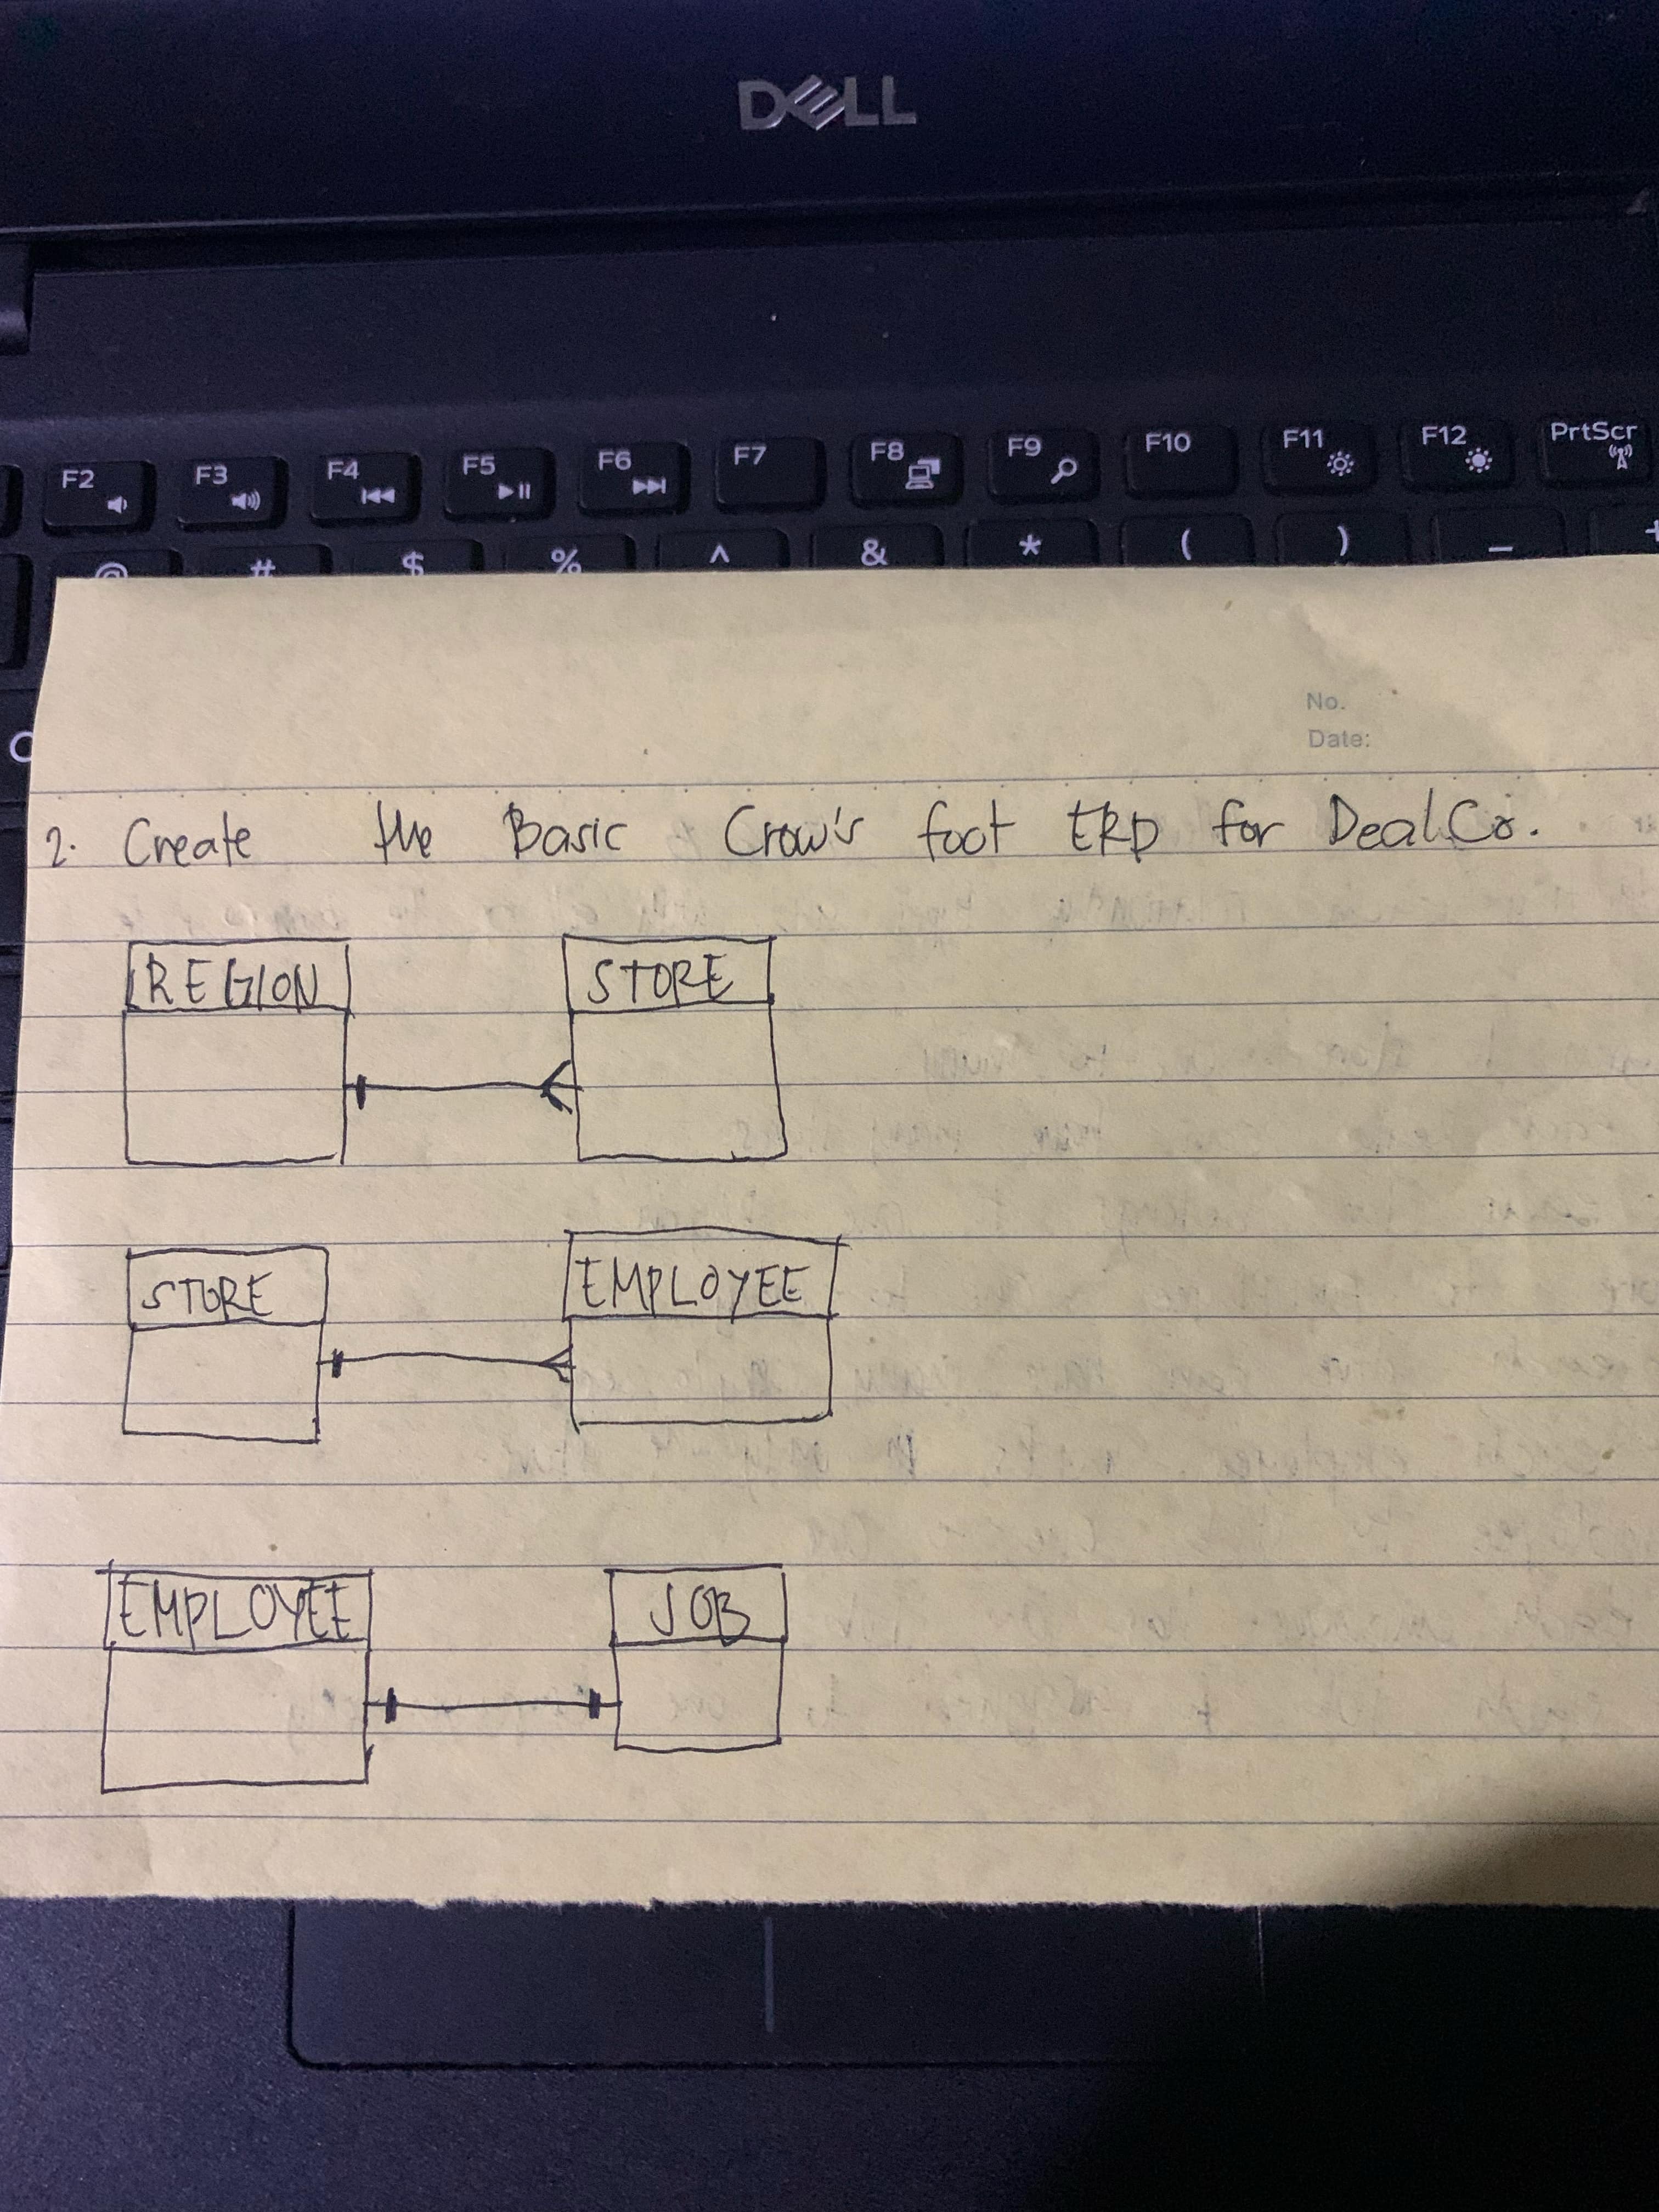 DELL
F2 F3 F4 F5 F6 F7 F8 F9 F10 F11 F12 PrtScr
@ # $ % ^ & * ( ) _ +
No.
Date:
2. Create the Basic Crow's foot ERD for DealCo.
REGION STORE
STORE EMPLOYEE
EMPLOYEE JOB